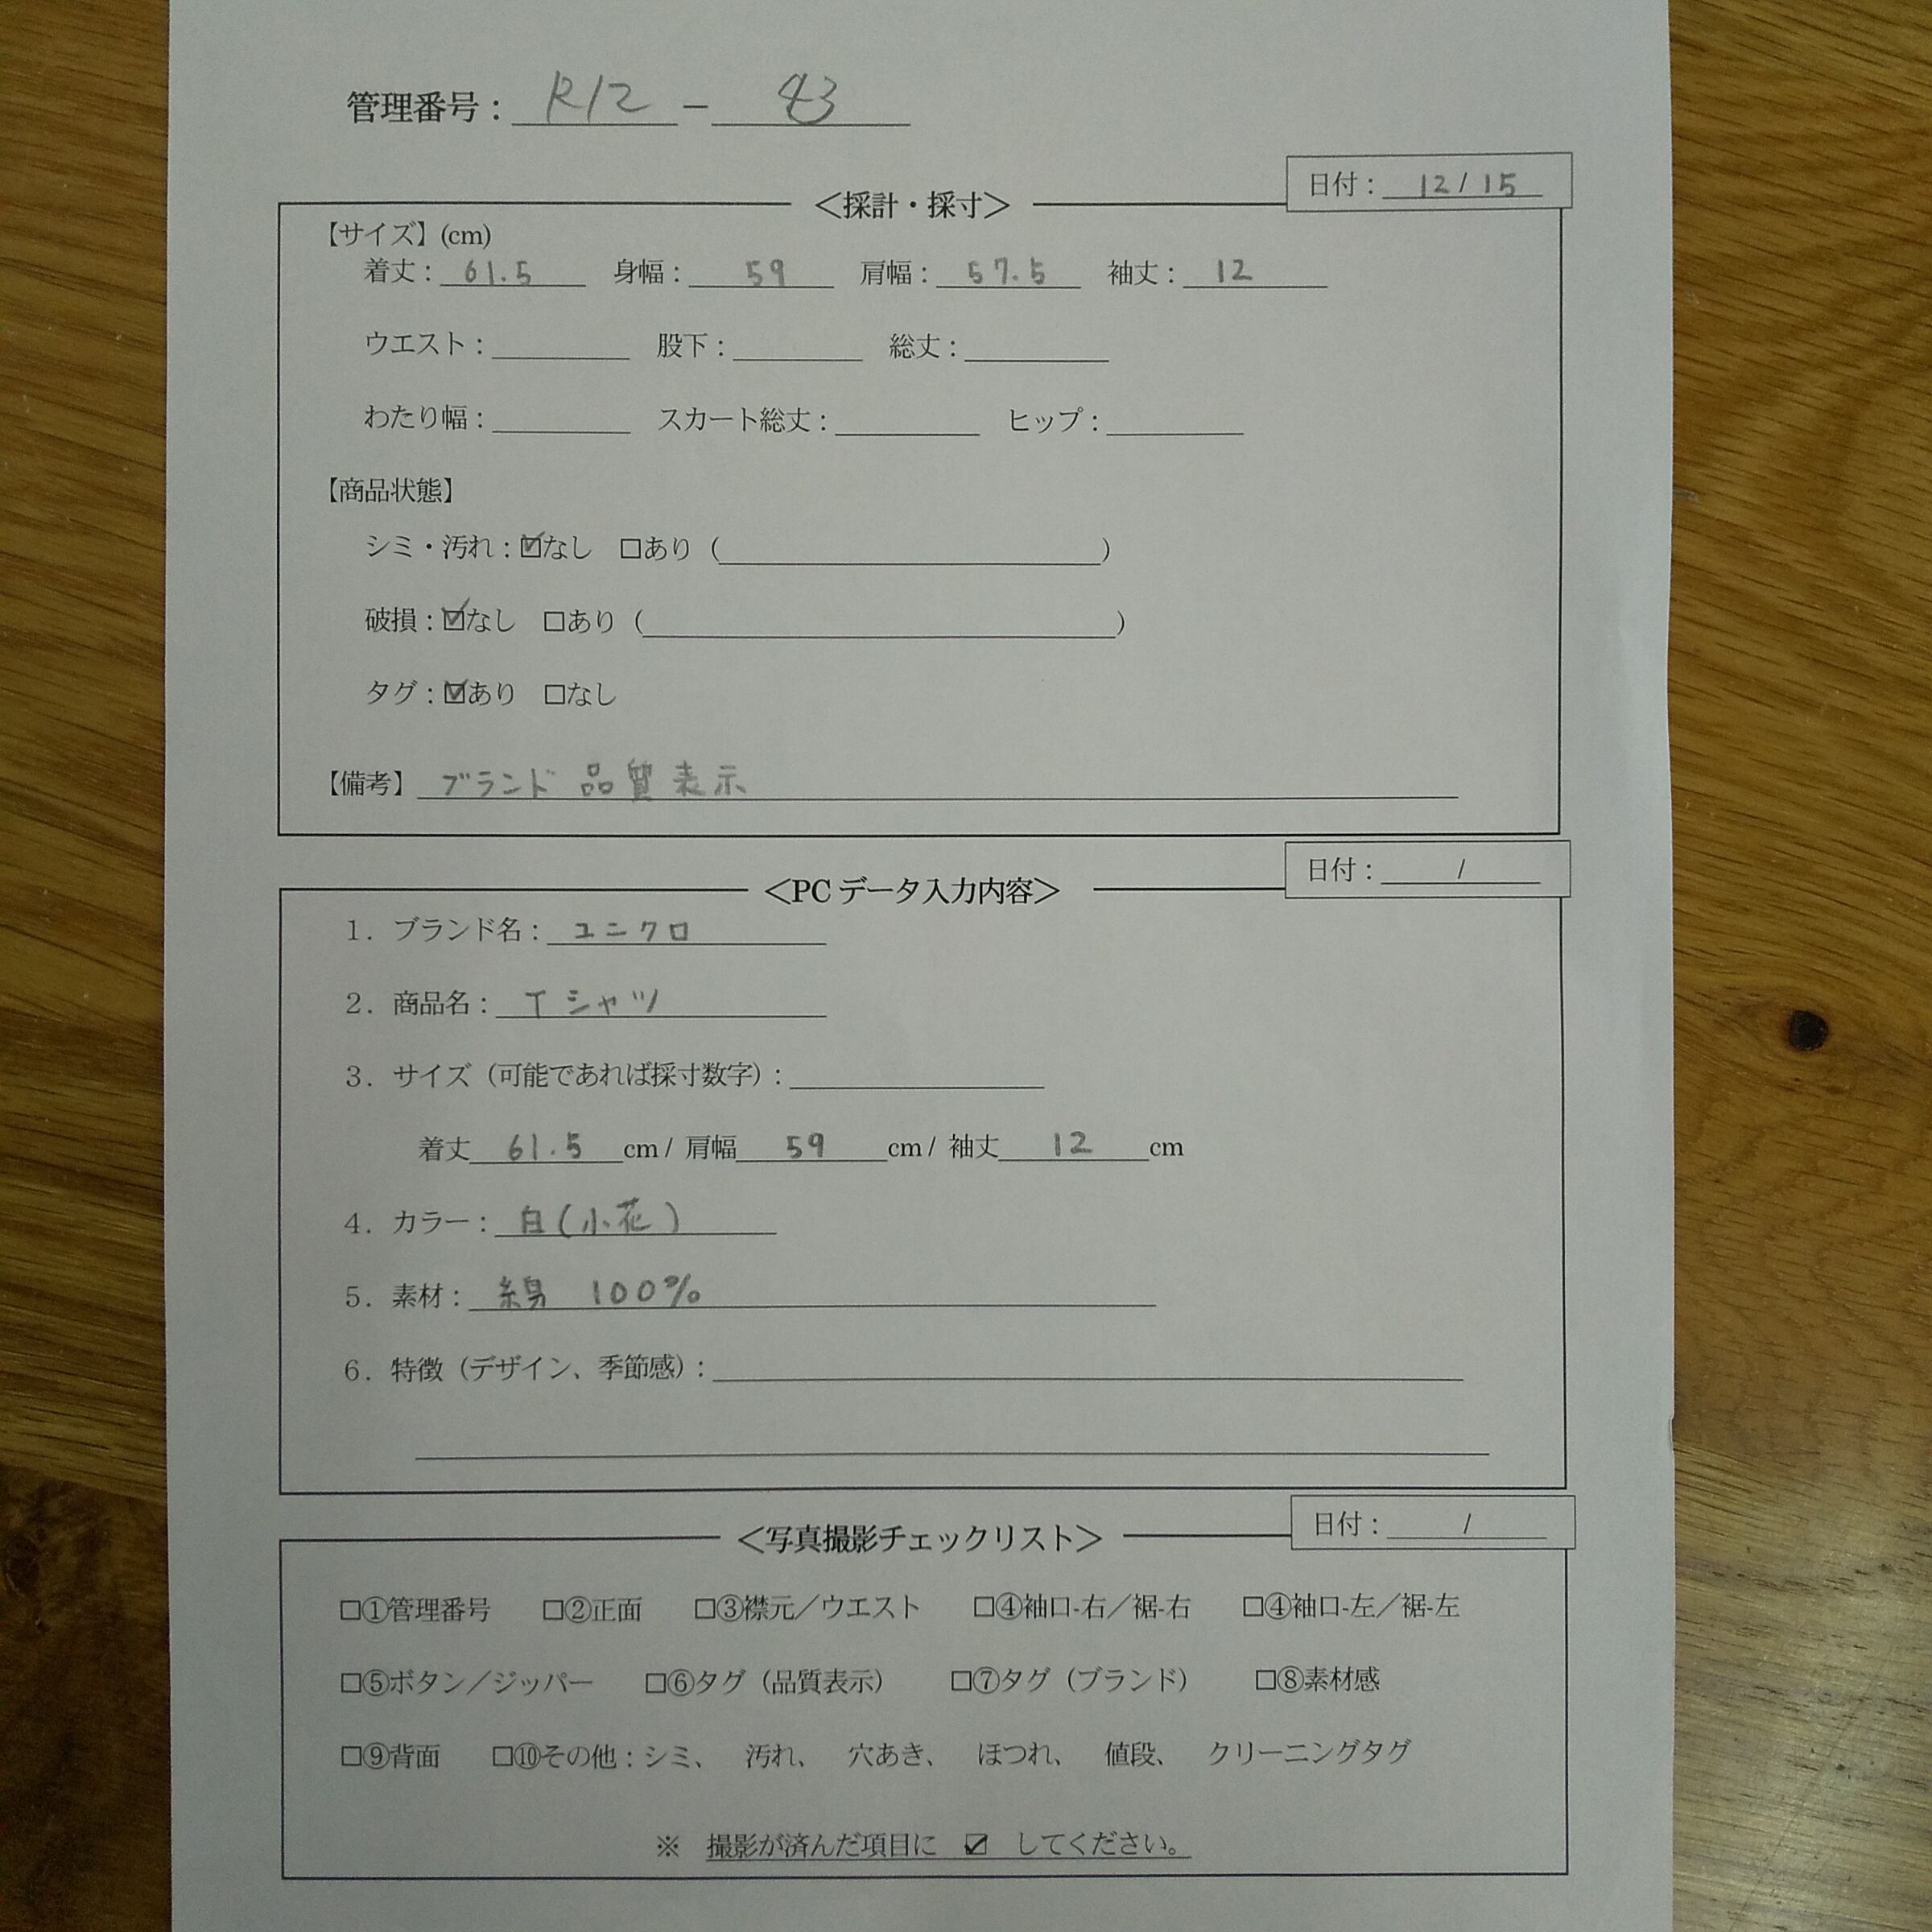 管理番号: R12 - 43
日付: 12/15
<採計・採寸>
【サイズ】(cm)
着丈: 61.5 身幅: 59 肩幅: 57.5 袖丈: 12
ウエスト: 股下: 総丈:
わたり幅: スカート総丈: ヒップ:
【商品状態】
シミ・汚れ:☑なし □あり ( )
破損:☑なし □あり ( )
タグ:☑あり □なし
【備考】 ブランド 品質表示
日付: /
<PCデータ入力内容>
1. ブランド名: ユニクロ
2. 商品名: Tシャツ
3. サイズ(可能であれば採寸数字):
着丈 61.5 cm / 肩幅 59 cm / 袖丈 12 cm
4. カラー: 白(小花)
5. 素材: 綿 100%
6. 特徴(デザイン、季節感):
日付: /
<写真撮影チェックリスト>
□①管理番号 □②正面 □③襟元/ウエスト □④袖口-右/裾-右 □④袖口-左/裾-左
□⑤ボタン/ジッパー □⑥タグ(品質表示) □⑦タグ(ブランド) □⑧素材感
□⑨背面 □⑩その他:シミ、 汚れ、 穴あき、 ほつれ、 値段、 クリーニングタグ
※ 撮影が済んだ項目に ☑ してください。